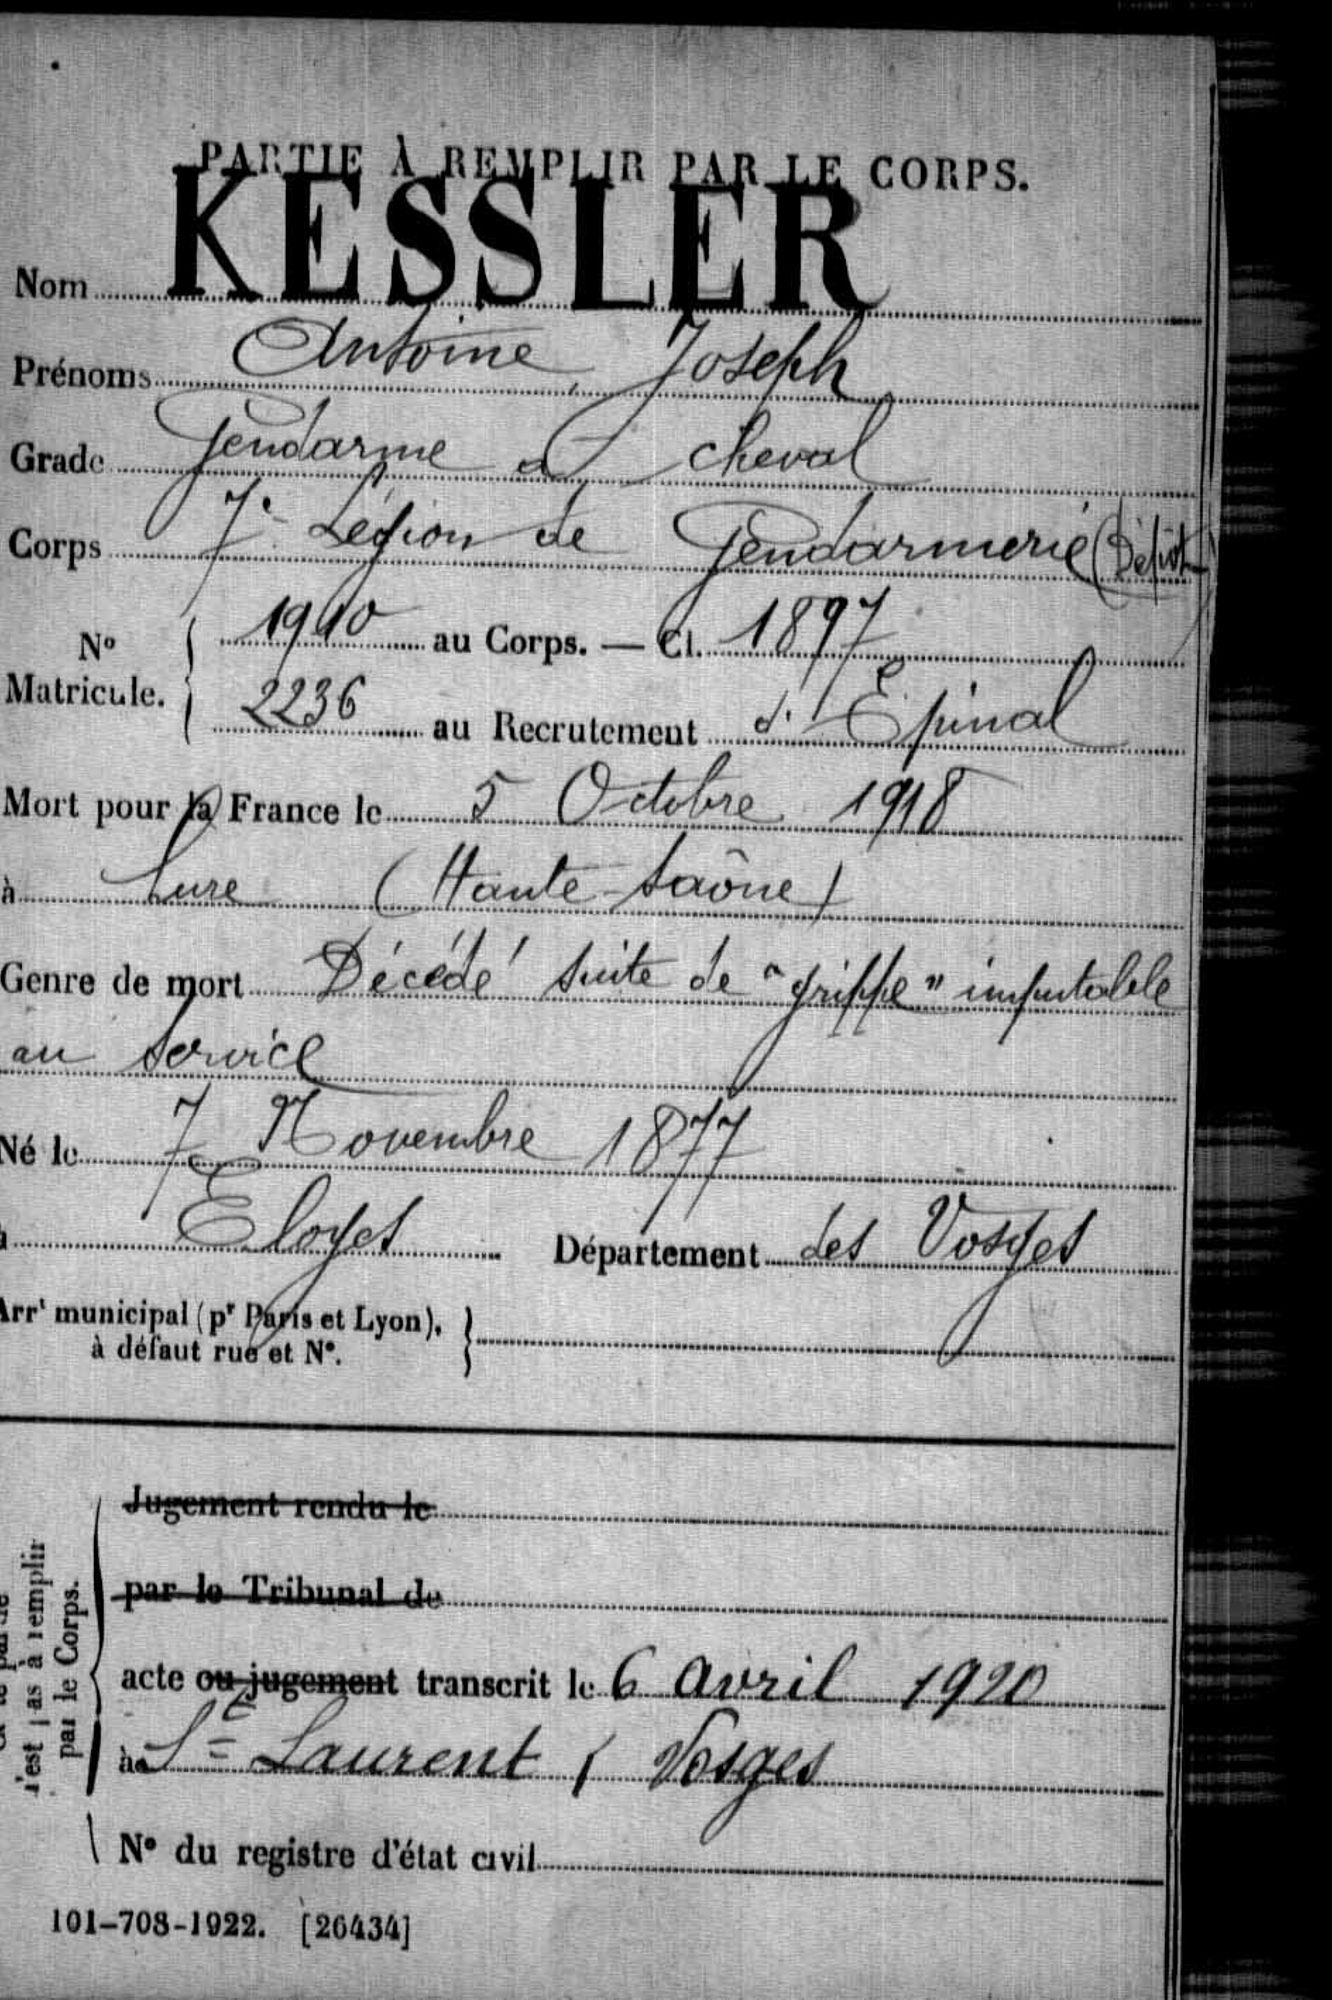 PARTIE À REMPLIR PAR LE CORPS.
Nom KESSLER
Prénoms Antoine, Joseph
Grade Gendarme à cheval
Corps 7e Légion de Gendarmerie (Dépôt)
No Matricule. { 1910 au Corps. — Cl. 1897
2236 au Recrutement d'Épinal
Mort pour la France le 5 Octobre 1918
à Lure (Haute-Saône)
Genre de mort Décédé suite de "grippe" imputable
au service
Né le 7 Novembre 1877
à Eloyes Département des Vosges
Arrt municipal (pr Paris et Lyon), }
à défaut rue et No.
Jugement rendu le
par le Tribunal de
acte ou jugement transcrit le 6 avril 1920
à St Laurent ( Vosges
No du registre d'état civil
n'est pas à remplir
par le Corps.
101-708-1922. [26434]